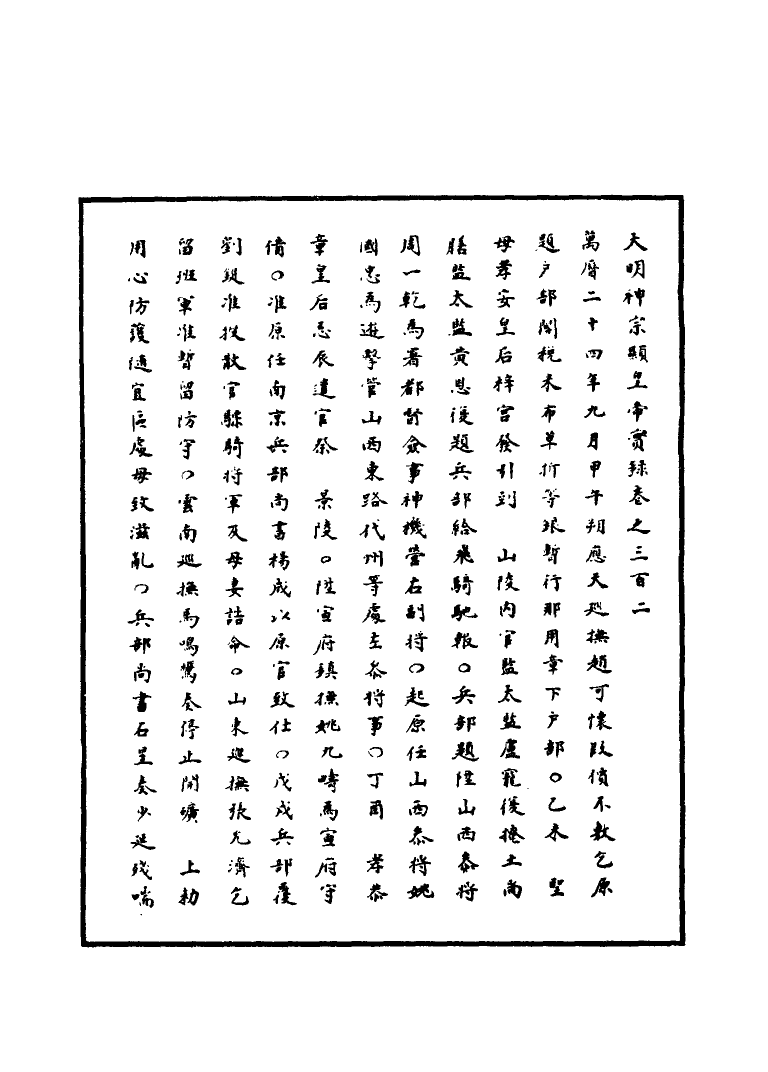 大明神宗顯皇帝實錄卷之三百二
萬曆二十四年九月甲午朔應天巡撫趙可懷以償不敷乞原
題戶部關稅米布草折等銀暫行那用章下戶部○乙未 聖
母孝安皇后梓宮發引到 山陵內官監太監盧寵後捲土尚
膳監太監黃恩後題兵部給飛騎馳報○兵部題陞山西參將
周一乾為署都督僉事神機營右副將○起原任山西參將姚
國忠為遊擊管山西東路代州等處左參將事○丁酉 孝恭
章皇后忌辰遣官祭 景陵○陞宣府鎮撫姚九疇為宣府守
備○准原任南京兵部尚書楊成以原官致仕○戊戌兵部覆
劉綎准授散官驃騎將軍及母妻誥命○山東巡撫張允濟乞
留班軍准暫留防守○雲南巡撫馬鳴鸞奏停止開礦 上勅
用心防護隨宜區處毋致滋亂○兵部尚書石星奏少延殘喘